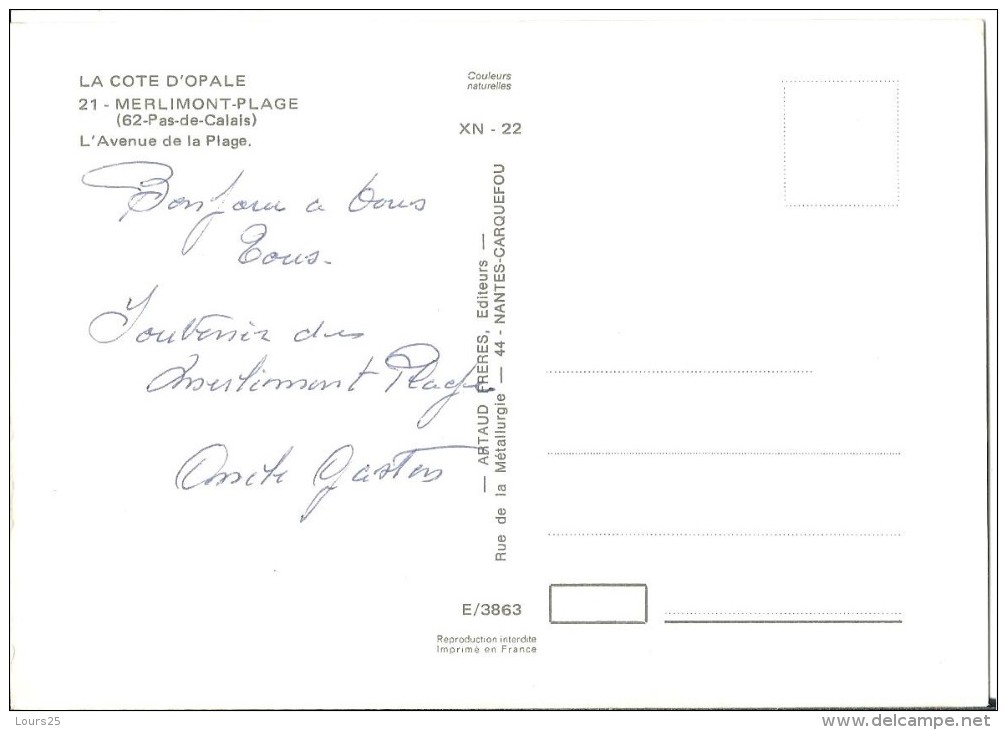 LA COTE D'OPALE
21 - MERLIMONT-PLAGE
(62-Pas-de-Calais)
L'Avenue de la Plage.
Bonjour a vous
Tous.
Souvenir du
Merlimont Plage
Gaston
Couleurs
naturelles
XN - 22
— ARTAUD FRERES, Editeurs —
Rue de la Métallurgie — 44 - NANTES-CARQUEFOU
E/3863
Reproduction interdite
Imprimé en France
Lours25
www.delcampe.net